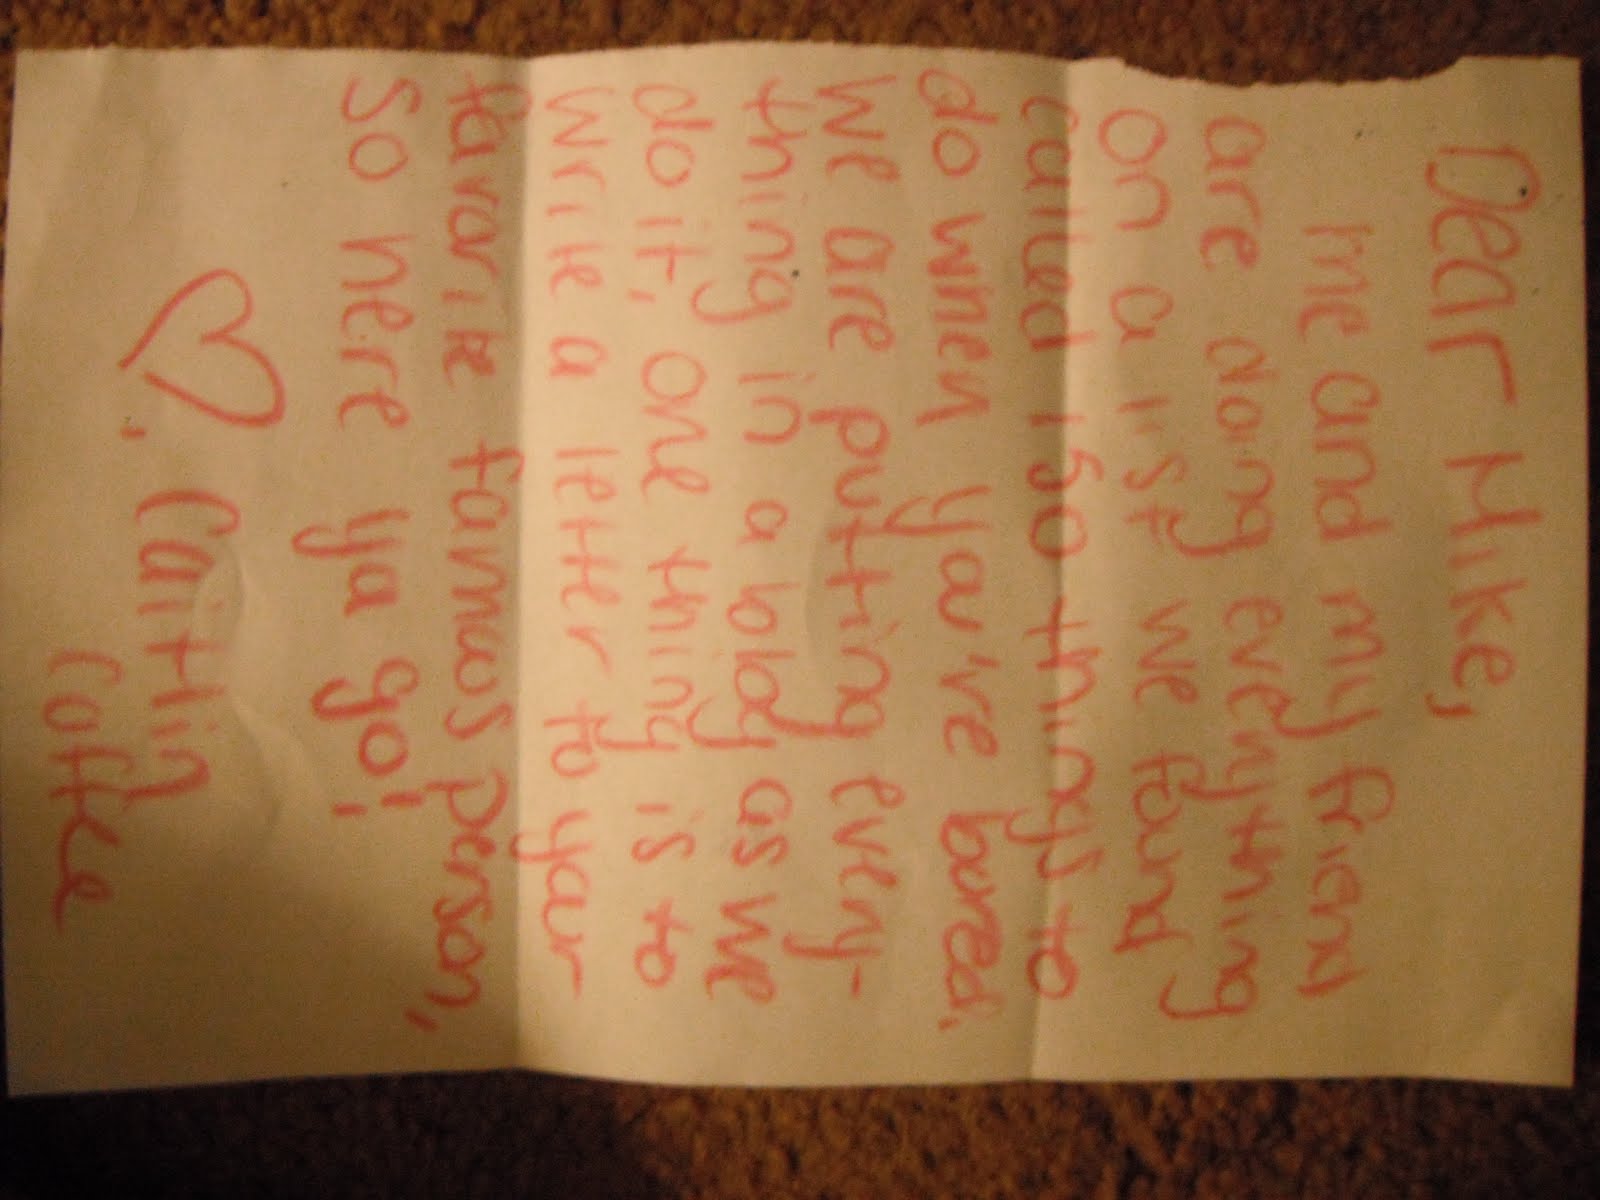 Dear Mike,
me and my friend
are doing everything
on a list we found
called 150 things to
do when you've bored.
We are putting every-
thing in a blog as we
do it, one thing is to
write a letter to your
favorite famous person,
So here ya go!
♡, Caitlin